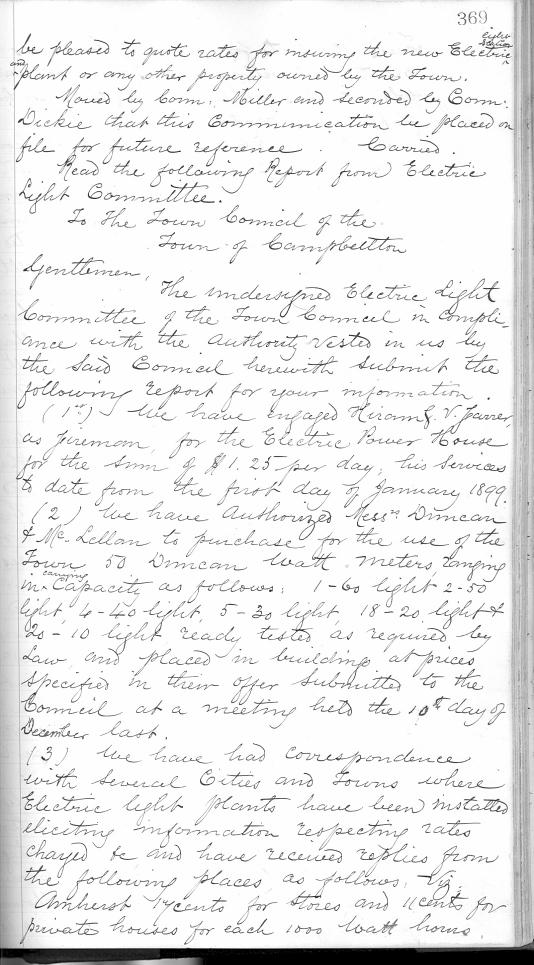 369
be pleased to quote rates for insuring the new Electric light Station
and plant or any other property owned by the Town.
Moved by Conn: Miller and seconded by Conn:
Dickie that this Communication be placed on
file for future reference. Carried.
Read the following Report from Electric
Light Committee.
To The Town Council of the
Town of Campbellton
Gentlemen,
The undersigned Electric Light
Committee of the Town Council in Compli-
ance with the authority vested in us by
the Said Council herewith submit the
following report for your information.
(1st) We have engaged Hiram
as fireman, for the Electric Power House
for the sum of $1.25 per day, his services
to date from the first day of January 1899.
(2) We have authorized Messrs Duncan
& McLellan to purchase for the use of the
Town 50 Duncan Watt meters ranging
in carrying Capacity as follows: 1-60 light 2-50
light, 4-40 light, 5-30 light, 18-20 light &
20-10 light ready tested as required by
Law, and placed in building, at prices
specified in their offer submitted to the
Council at a meeting held the 10th day of
December last.
(3) We have had correspondence
with several Cities and Towns where
Electric light plants have been installed
eliciting information respecting rates
charged &c and have received replies from
the following places as follows, Viz;
Amherst 17 cents for stores and 11 cents for
private houses for each 1000 Watt hours.